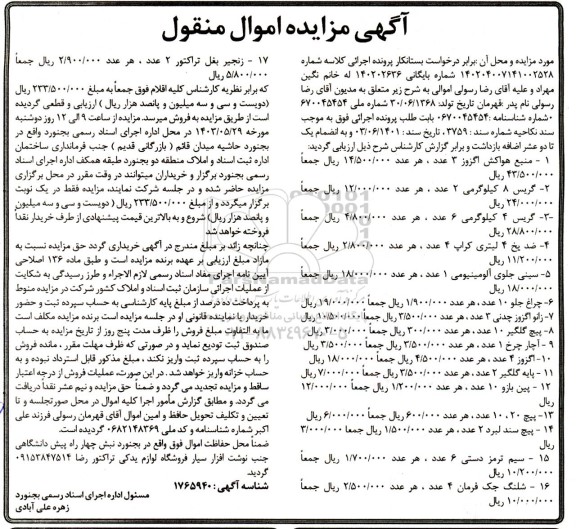 آگهی مزایده اموال منقول
مورد مزایده و محل آن :برابر درخواست بستانکار پرونده اجرائی کلاسه شماره
۱۴۰۲۰۴۰۰۷۱۴۱۰۰۲۵۲۸ شماره بایگانی ۱۴۰۲۰۲۶۳۶ له خانم نگین
مهراد و علیه آقای رضا رسولی اموالی به شرح زیر متعلق به مدیون آقای رضا
رسولی نام پدر :قهرمان تاریخ تولد: ۳۰/۰۶/۱۳۶۸ شماره ملی ۶۷۰۰۴۵۴۵۴
۰شماره شناسنامه :۶۷۰۰۴۵۴۵۴۰ بابت طلب پرونده اجرائی فوق به موجب
سند نکاحیه شماره سند : ۳۷۵۹، تاریخ سند : ۰۳/۰۶/۱۴۰۱ و به انضمام یک
تا دو عشر اضافه بازداشت و برابر گزارش کارشناس شرح ذیل ارزیابی گردید:
۱ - منبع هواکش اگزوز ۳ عدد ، هر عدد ۱۴/۵۰۰/۰۰۰ ریال جمعاً
۴۳/۵۰۰/۰۰۰ ریال
۲- گریس ۸ کیلوگرمی ۲ عدد ، هر عدد ۱۲/۰۰۰/۰۰۰ ریال جمعاً
۲۴/۰۰۰/۰۰۰ ریال
۳- گریس ۴ کیلوگرمی ۶ عدد ، هر عدد ۴/۸۰۰/۰۰۰ ریال جمعاً
۲۸/۸۰۰/۰۰۰ ریال
۴- ضد یخ ۴ لیتری کراپ ۴ عدد ، هر عدد ۲/۸۰۰/۰۰۰ ریال جمعاً
۱۱/۲۰۰/۰۰۰ ریال
۵- سینی جلوی آلومینیومی ۱ عدد ، هر عدد ۱۸/۰۰۰/۰۰۰ ریال جمعاً
۱۸/۰۰۰/۰۰۰ ریال
۶- چراغ جلو ۱۰ عدد ، هر عدد ۱/۹۰۰/۰۰۰ ریال جمعاً ۱۹/۰۰۰/۰۰۰ ریال
۷- زانو اگزوز چدنی ۳ عدد ، هر عدد ۳/۵۰۰/۰۰۰ ریال جمعاً ۱۰/۵۰۰/۰۰۰ ریال
۸- پیچ گلگیر ۱۰ عدد ، هر عدد ۳۰۰/۰۰۰ ریال جمعاً ۳/۰۰۰/۰۰۰ ریال
۹- آچار چرخ ۱ عدد ، هر عدد ۳/۵۰۰/۰۰۰ ریال جمعاً ۳/۵۰۰/۰۰۰ ریال
۱۰- اگزوز ۴ عدد ، هر عدد ۴/۵۰۰/۰۰۰ ریال جمعاً ۱۸/۰۰۰/۰۰۰ ریال
۱۱- پایه گلگیر ۲ عدد ، هر عدد ۳/۵۰۰/۰۰۰ ریال جمعاً ۷/۰۰۰/۰۰۰ ریال
۱۲- پین بازو ۱۰ عدد ، هر عدد ۱/۲۰۰/۰۰۰ ریال جمعاً ۱۲/۰۰۰/۰۰۰
ریال
۱۳- پیچ ۲۰، ۱۰ عدد ، هر عدد ۶۰۰/۰۰۰ ریال جمعاً ۶/۰۰۰/۰۰۰ ریال
۱۴- پیچ سند لبرد ۲ عدد ، هر عدد ۱/۵۰۰/۰۰۰ ریال جمعاً ۳/۰۰۰/۰۰۰
ریال
۱۵ - سیم ترمز دستی ۶ عدد ، هر عدد ۱/۷۰۰/۰۰۰ ریال جمعاً
۱۰/۲۰۰/۰۰۰ ریال
۱۶- شلنگ جک فرمان ۴ عدد ، هر عدد ۲/۵۰۰/۰۰۰ ریال جمعاً
۱۰/۰۰۰/۰۰۰ ریال
۱۷ - زنجیر بغل تراکتور ۲ عدد ، هر عدد ۲/۹۰۰/۰۰۰ ریال جمعاً
۵/۸۰۰/۰۰۰ ریال
که برابر نظریه کارشناس کلیه اقلام فوق جمعاً به مبلغ ۲۳۳/۵۰۰/۰۰۰ ریال
(دویست و سی و سه میلیون و پانصد هزار ریال ) ارزیابی و قطعی گردیده
است از طریق مزایده به فروش میرسد. مزایده از ساعت ۹ الی ۱۲ روز دوشنبه
مورخه ۱۴۰۳/۰۵/۲۹ در محل اداره اجرای اسناد رسمی بجنورد واقع در
بجنورد حاشیه میدان قائم ( بازرگانی قدیم ) جنب فرمانداری ساختمان
اداره ثبت اسناد و املاک منطقه دو بجنورد طبقه همکف اداره اجرای اسناد
رسمی بجنورد برگزار و خریداران میتوانند در وقت مقرر در محل برگزاری
مزایده حاضر شده و در جلسه شرکت نمایند، مزایده فقط در یک نوبت
برگزار میگردد و از مبلغ ۲۳۳/۵۰۰/۰۰۰ ریال ( دویست و سی و سه میلیون
و پانصد هزار ریال) شروع و به بالاترین قیمت پیشنهادی از طرف خریدار نقداً
فروخته خواهد شد
چنانچه زائد بر مبلغ مندرج در آگهی خریداری گردد حق مزایده نسبت به
مازاد مبلغ ارزیابی بر عهده برنده مزایده است و طبق ماده ۱۳۶ اصلاحی
آیین نامه اجرای مفاد اسناد رسمی لازم الاجراء و طرز رسیدگی به شکایت
از عملیات اجرائی سازمان ثبت اسناد و املاک کشور شرکت در مزایده منوط
به پرداخت ده درصد از مبلغ پایه کارشناسی به حساب سپرده ثبت و حضور
خریدار یا نماینده قانونی او در جلسه مزایده است برنده مزایده مکلف است
ما به التفاوت مبلغ فروش را ظرف مدت پنج روز از تاریخ مزایده به حساب
صندوق ثبت تودیع نماید و در صورتی که ظرف مهلت مقرر ، مانده فروش
را به حساب سپرده ثبت واریز نکند ، مبلغ مذکور قابل استرداد نبوده و به
حساب خزانه واریز خواهد شد . در این صورت، عملیات فروش از درجه اعتبار
ساقط و مزایده تجدید می گردد و ضمناً حق مزایده و نیم عشر نقداً دریافت
می گردد، و مطابق گزارش مأمور اجرا کلیه اموال در محل صورتجلسه و تا
تعیین و تکلیف تحویل حافظ و امین اموال آقای قهرمان رسولی فرزند علی
اکبر شماره شناسنامه و کد ملی ۰۶۸۲۱۴۸۳۶۹ گردیده است.
ضمناً محل حفاظت اموال فوق واقع در بجنورد نبش چهار راه پیش دانشگاهی
جنب نوشت افزار سیار فروشگاه لوازم یدکی تراکتور رضا ۰۹۱۵۳۸۴۷۵۱۴
گردید.
شناسه آگهی: ۱۷۶۵۹۴۰
مسئول اداره اجرای اسناد رسمی بجنورد
زهره علی آبادی